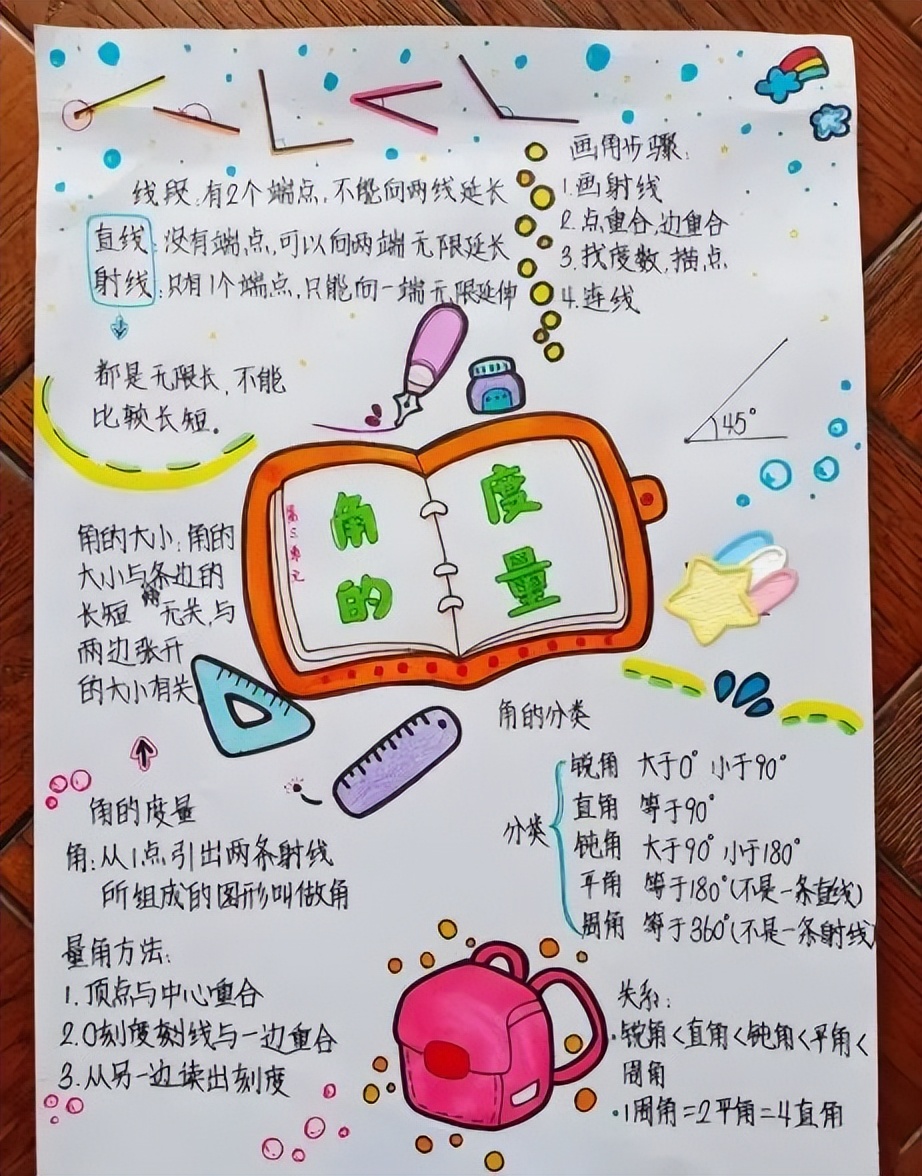 线段:有2个端点,不能向两线延长
直线:没有端点,可以向两端无限延长
射线:只有1个端点,只能向一端无限延伸
都是无限长,不能
比较长短。
画角步骤:
1.画射线
2.点重合,边重合
3.找度数,描点
4.连线
45°
第三单元
角的
度量
角的大小:角的
大小与条边的
长短 无关,与
两边张开
的大小有关
角的度量
角:从1点引出两条射线
所组成的图形叫做角
量角方法:
1.顶点与中心重合
2.0刻度刻线与一边重合
3.从另一边读出刻度
角的分类
分类
锐角 大于0° 小于90°
直角 等于90°
钝角 大于90° 小于180°
平角 等于180°(不是一条直线)
周角 等于360°(不是一条射线)
关系:
·锐角<直角<钝角<平角<
周角
·1周角=2平角=4直角